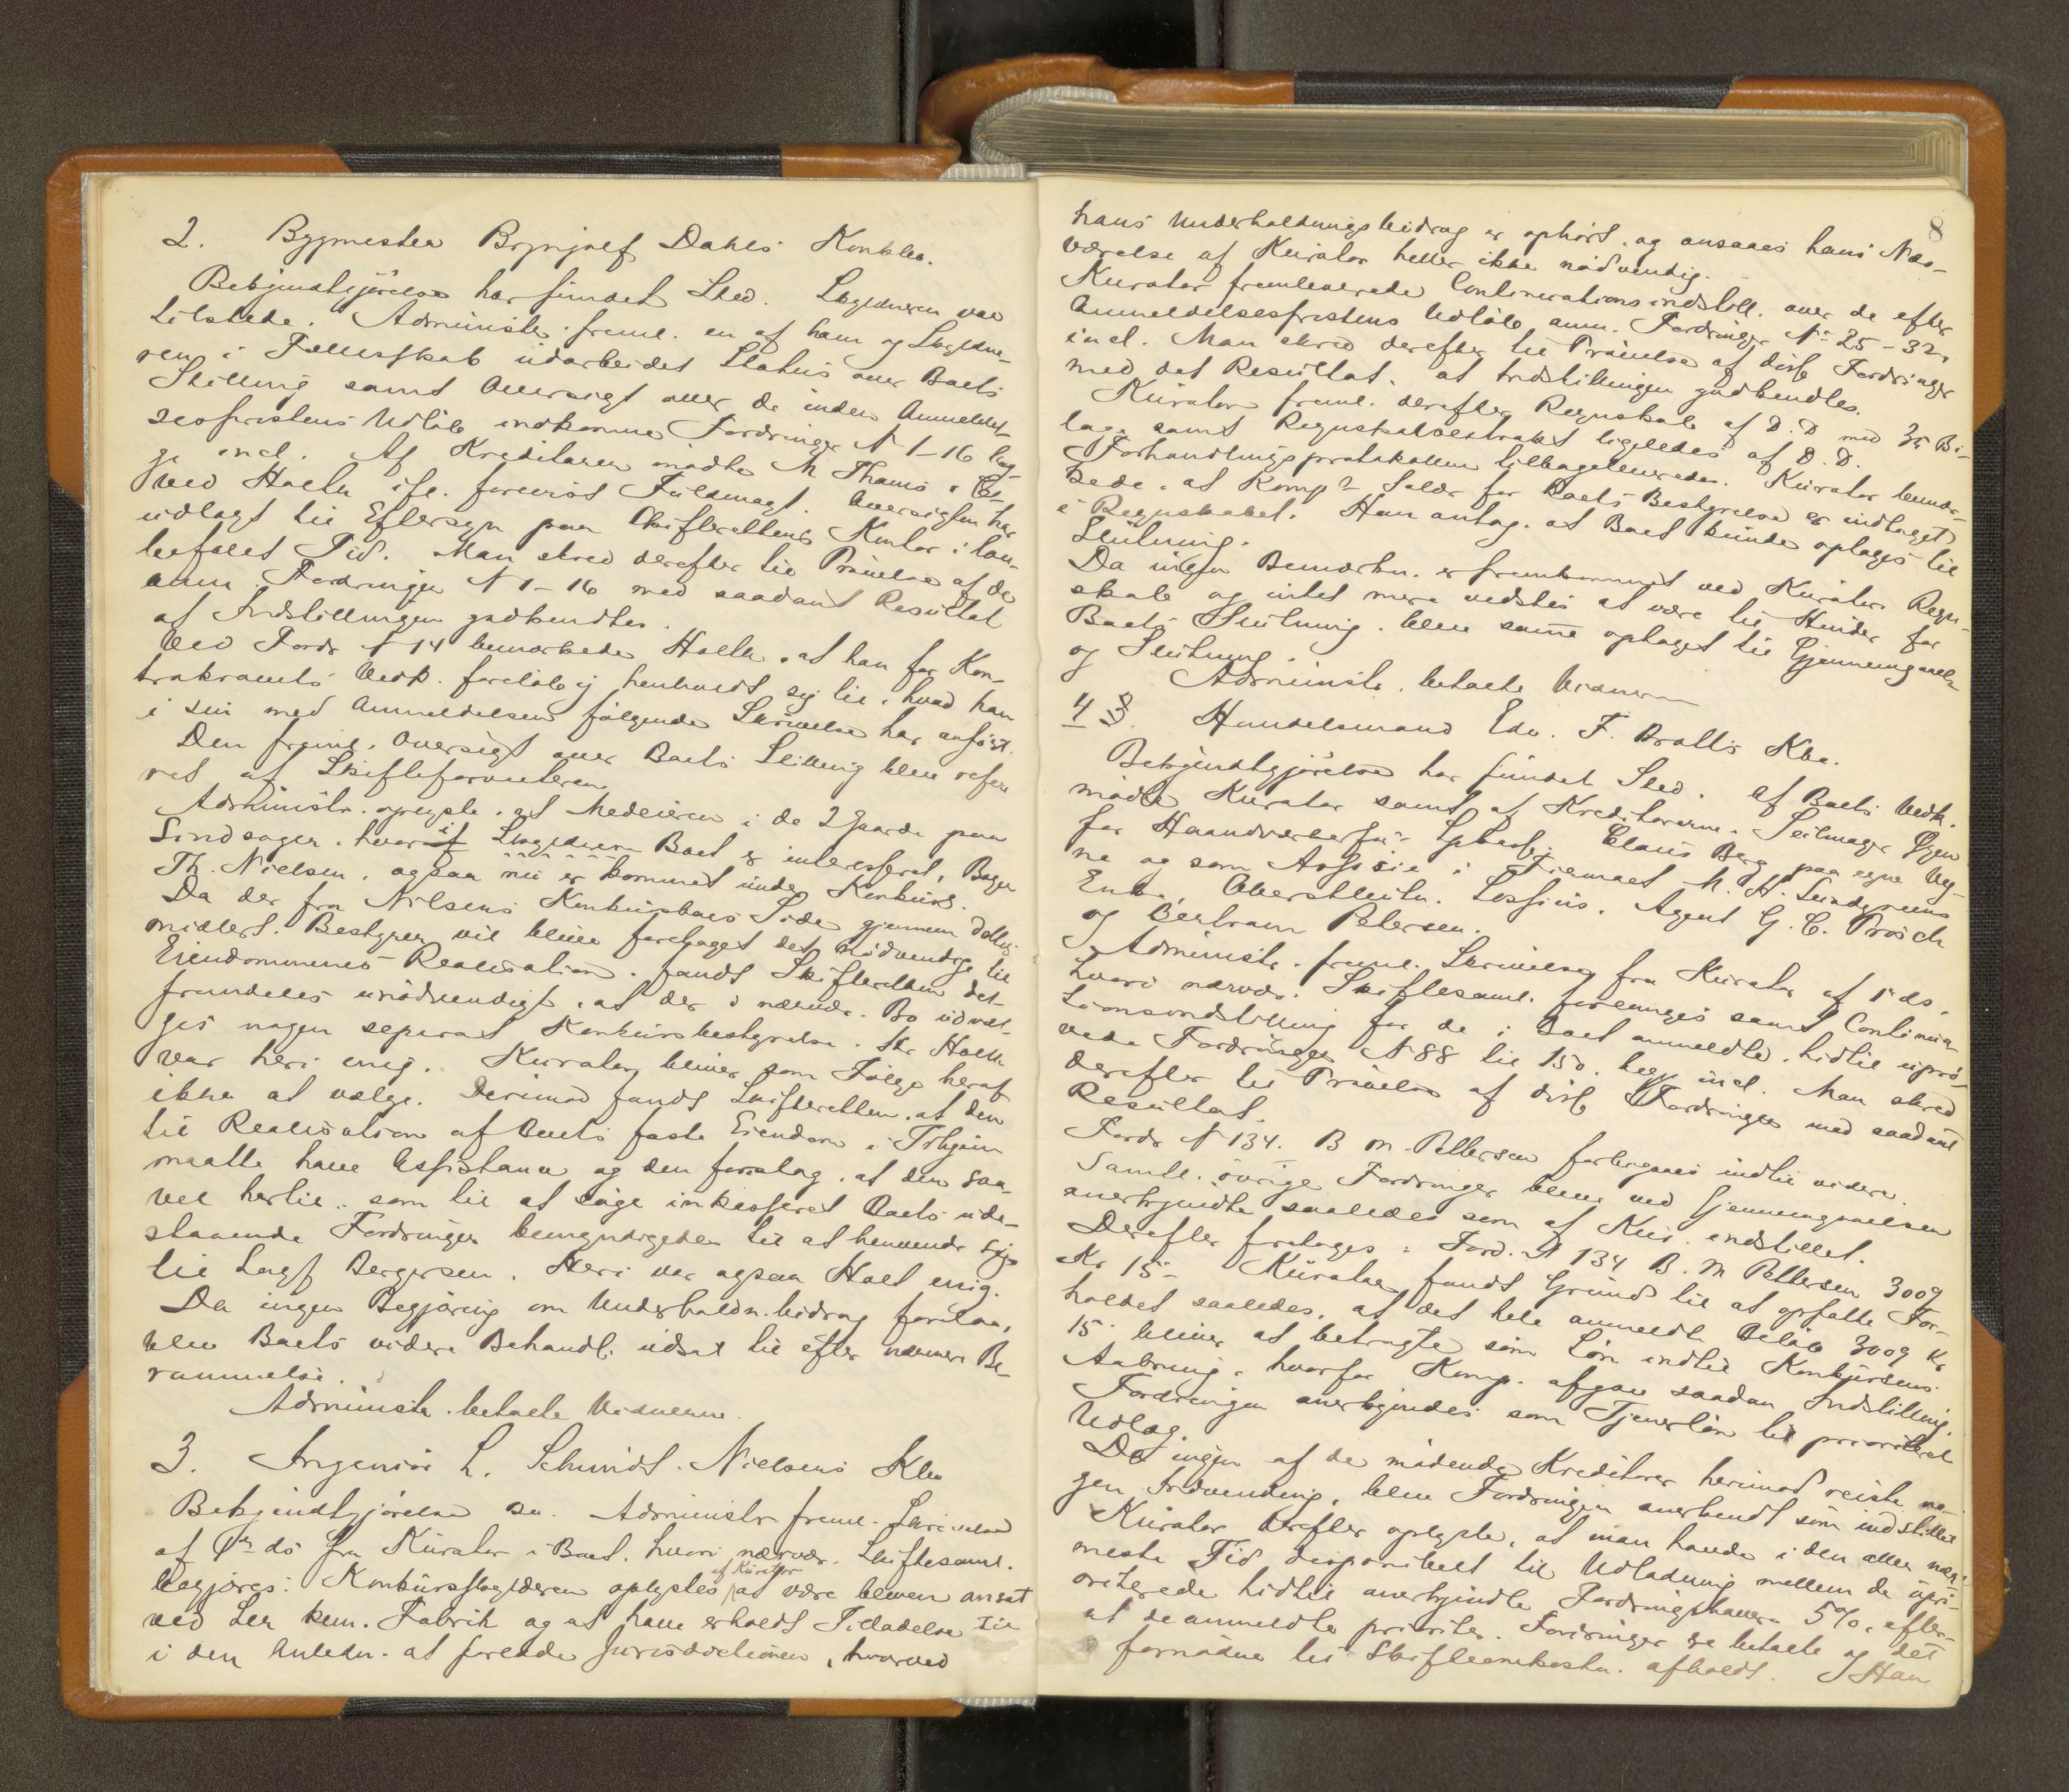 2. Bygmester Brynjulf Dahls Konkbo.
Bekjendtgjørelse har fundet Sted. Skyldneren var
tilstede. Administr. freml. en af ham og Skyldne-
ren i Fællesskab udarbeidet Status over Boets
Stilling samt Oversigt over de inden Anmeldel-
sesfristens Udløb indkomne Fordringer N 1-16 beg-
ge incl. Af Kreditorer mødte M Thams,
ved Holth ifl. forevist Fuldmagt. Oversigten har
udlagt til Eftersyn paa Skifterettens Kontor i lov-
befalet Tid. Man skred derefter til Prøvelse af de
anm. Fordringer N 1-16 med saadant Resultat
at Indstillingen godkendtes.
Ved Fordr N 14 bemærkede Holth, at han for Kon-
trahents Vedk. foreløbig henholdt sig til, hvad han
i sin med Anmeldelsen følgende Skrivelse har anført.
Den freml. Oversigt over Boets Stilling blev refere-
ret af Skifteforvalteren
Administr. oplyste, at Medeieren i de 2 Gaarde paa
Sindsager, hvori Skyldneren Boet er interesseret, Bager
Th. Nielsen, ogsaa nu er kommet under Konkurs.
Da der fra Nilsens Konkursboes Side gjennem dettes
midlert. Bestyrer vil blive foretaget det nødvendige til
Eiendommenes Realisation, fandt Skifteretten det
fremdeles unødvendigt, at der i nærvær. Bo udvæl-
ges nogen separat Konkursbestyrelse. Hr Holth
var heri enig. Kurator bliver som Følge heraf
ikke at vælge. Derimod fandt Skifteretten, at den
til Realisation af Boets faste Eiendom i Trhjem
maatte have Assistance og den foreslog, at den saa-
vel hertil, som til at søge inkasseret Boets ude-
staaende Fordringer bemyndigedes til at henvende sig
til Sagf Bergersen. Heri var ogsaa Holt enig.
Da ingen Begjæring om Underholdn.bidrag forelaa,
blev Boets videre Behandl. udsat til efter nærmere Be-
rammelse.
Administr. betalte Vidnerne.
3. Ingeniør L. Schmidt-Nielsens Kbo
Bekjendtgjørelse sn. Administr. freml. Skrivelse
af ds fra Kurator i Boet, hvori nærvær. Skiftesaml.
begjæres: Konkursskyldneren oplystes af Kurator at være bleven ansat
ved Ler kem. Fabrik og at have erholdt Tilladelse til
i den Anledn. at forlade Jurisdictionen, hvorved
8
hans Underholdningsbidrag er ophørt, og ansaaes hans Nær-
værelse af Kurator heller ikke nødvendig.
Kurator fremleverede Continuationsindstill. over de efter
Anmeldelsesfristens Udløb anm. Fordringer N 25-32,
incl. Man skred derefter til Prøvelse af disse Fordringer
med det Resultat, at Indstillingen godkendtes.
Kurator freml. derefter Regnskab af D. D med 35 Bi-
lage samt Regnskabsextrakt ligeledes af D. D.
Forhandlingsprotokollen tilbageleveredes. Kurator bemær-
kede, at Komp Salær for Boets Bestyrelse er indtaget
i Regnskabet. Han antog, at Boet kunde optages til
Slutning.
Da ingen Bemærkn. er fremkommet ved Kurators Regn-
skab og intet mere vidstes at være til Hinder for
Boets Slutning, blev samme optaget til Gjennemgaaelse
og Slutning.
Administr. betalte Vidnerne
4 3. Handelsmand Edv. F. Bratts Kbo.
Bekjendtgjørelse har fundet Sted. Af Boets Vedk.
mødte Kurator samt af Kreditorerne. Seilmager Øyen
for Haandværkerfor Spkasse, Claus Berg paa egne Veg-
ne og som Associe i Firmaet M. H. Lundgreens
Enke, Oberstløitn. Lossius, Agent G. C. Prøsch
og Bertram Petersen.
Administr. freml. Skrivelse fra Kurator af ds,
hvori nærvær. Skiftesaml. forlanges samt Continua-
tionsindstilling for de i Boet anmeldte, hidtil uprø-
vede Fordringer N 88 til 150, begge incl. Man skred
derefter til Prøvelse af disse Fordringer med saadant
Resultat.
Fordr N 134. B M. Pettersen forbigaaes indtil videre.
Samtl. øvrige Fordringer blev ved Gjennemgaaelsen
anerkjendte saaledes som af Kur. indstillet.
Derefter foretoges: Ford. N 134 B. M Pettersen 3009
Kr 15. Kurator fandt Grund til at opfatte For-
holdet saaledes, at det hele anmeldte Beløb 3009 Kr
15 bliver at betragte som Løn indtil Konkursens
Aabning, hvorfor Komp. afgav saadan Indstilling:
Fordringen anerkjendes som Tjenerløn til prioriteret
Udlæg.
Da ingen af de mødende Kreditorer herimod reiste no-
gen Indvending, blev Fordringen anerkendt som indstillet
Kurator derefter oplyste, at man havde i den aller nær-
meste Tid disponibelt til Udlodning mellem de upri-
oriterede hidtil anerkjendte Fordringshavere 5%, efter-
at de anmeldte priorite. Fordringer er betalte og det
fornødne til Skifteomkostn. afholdt. Han